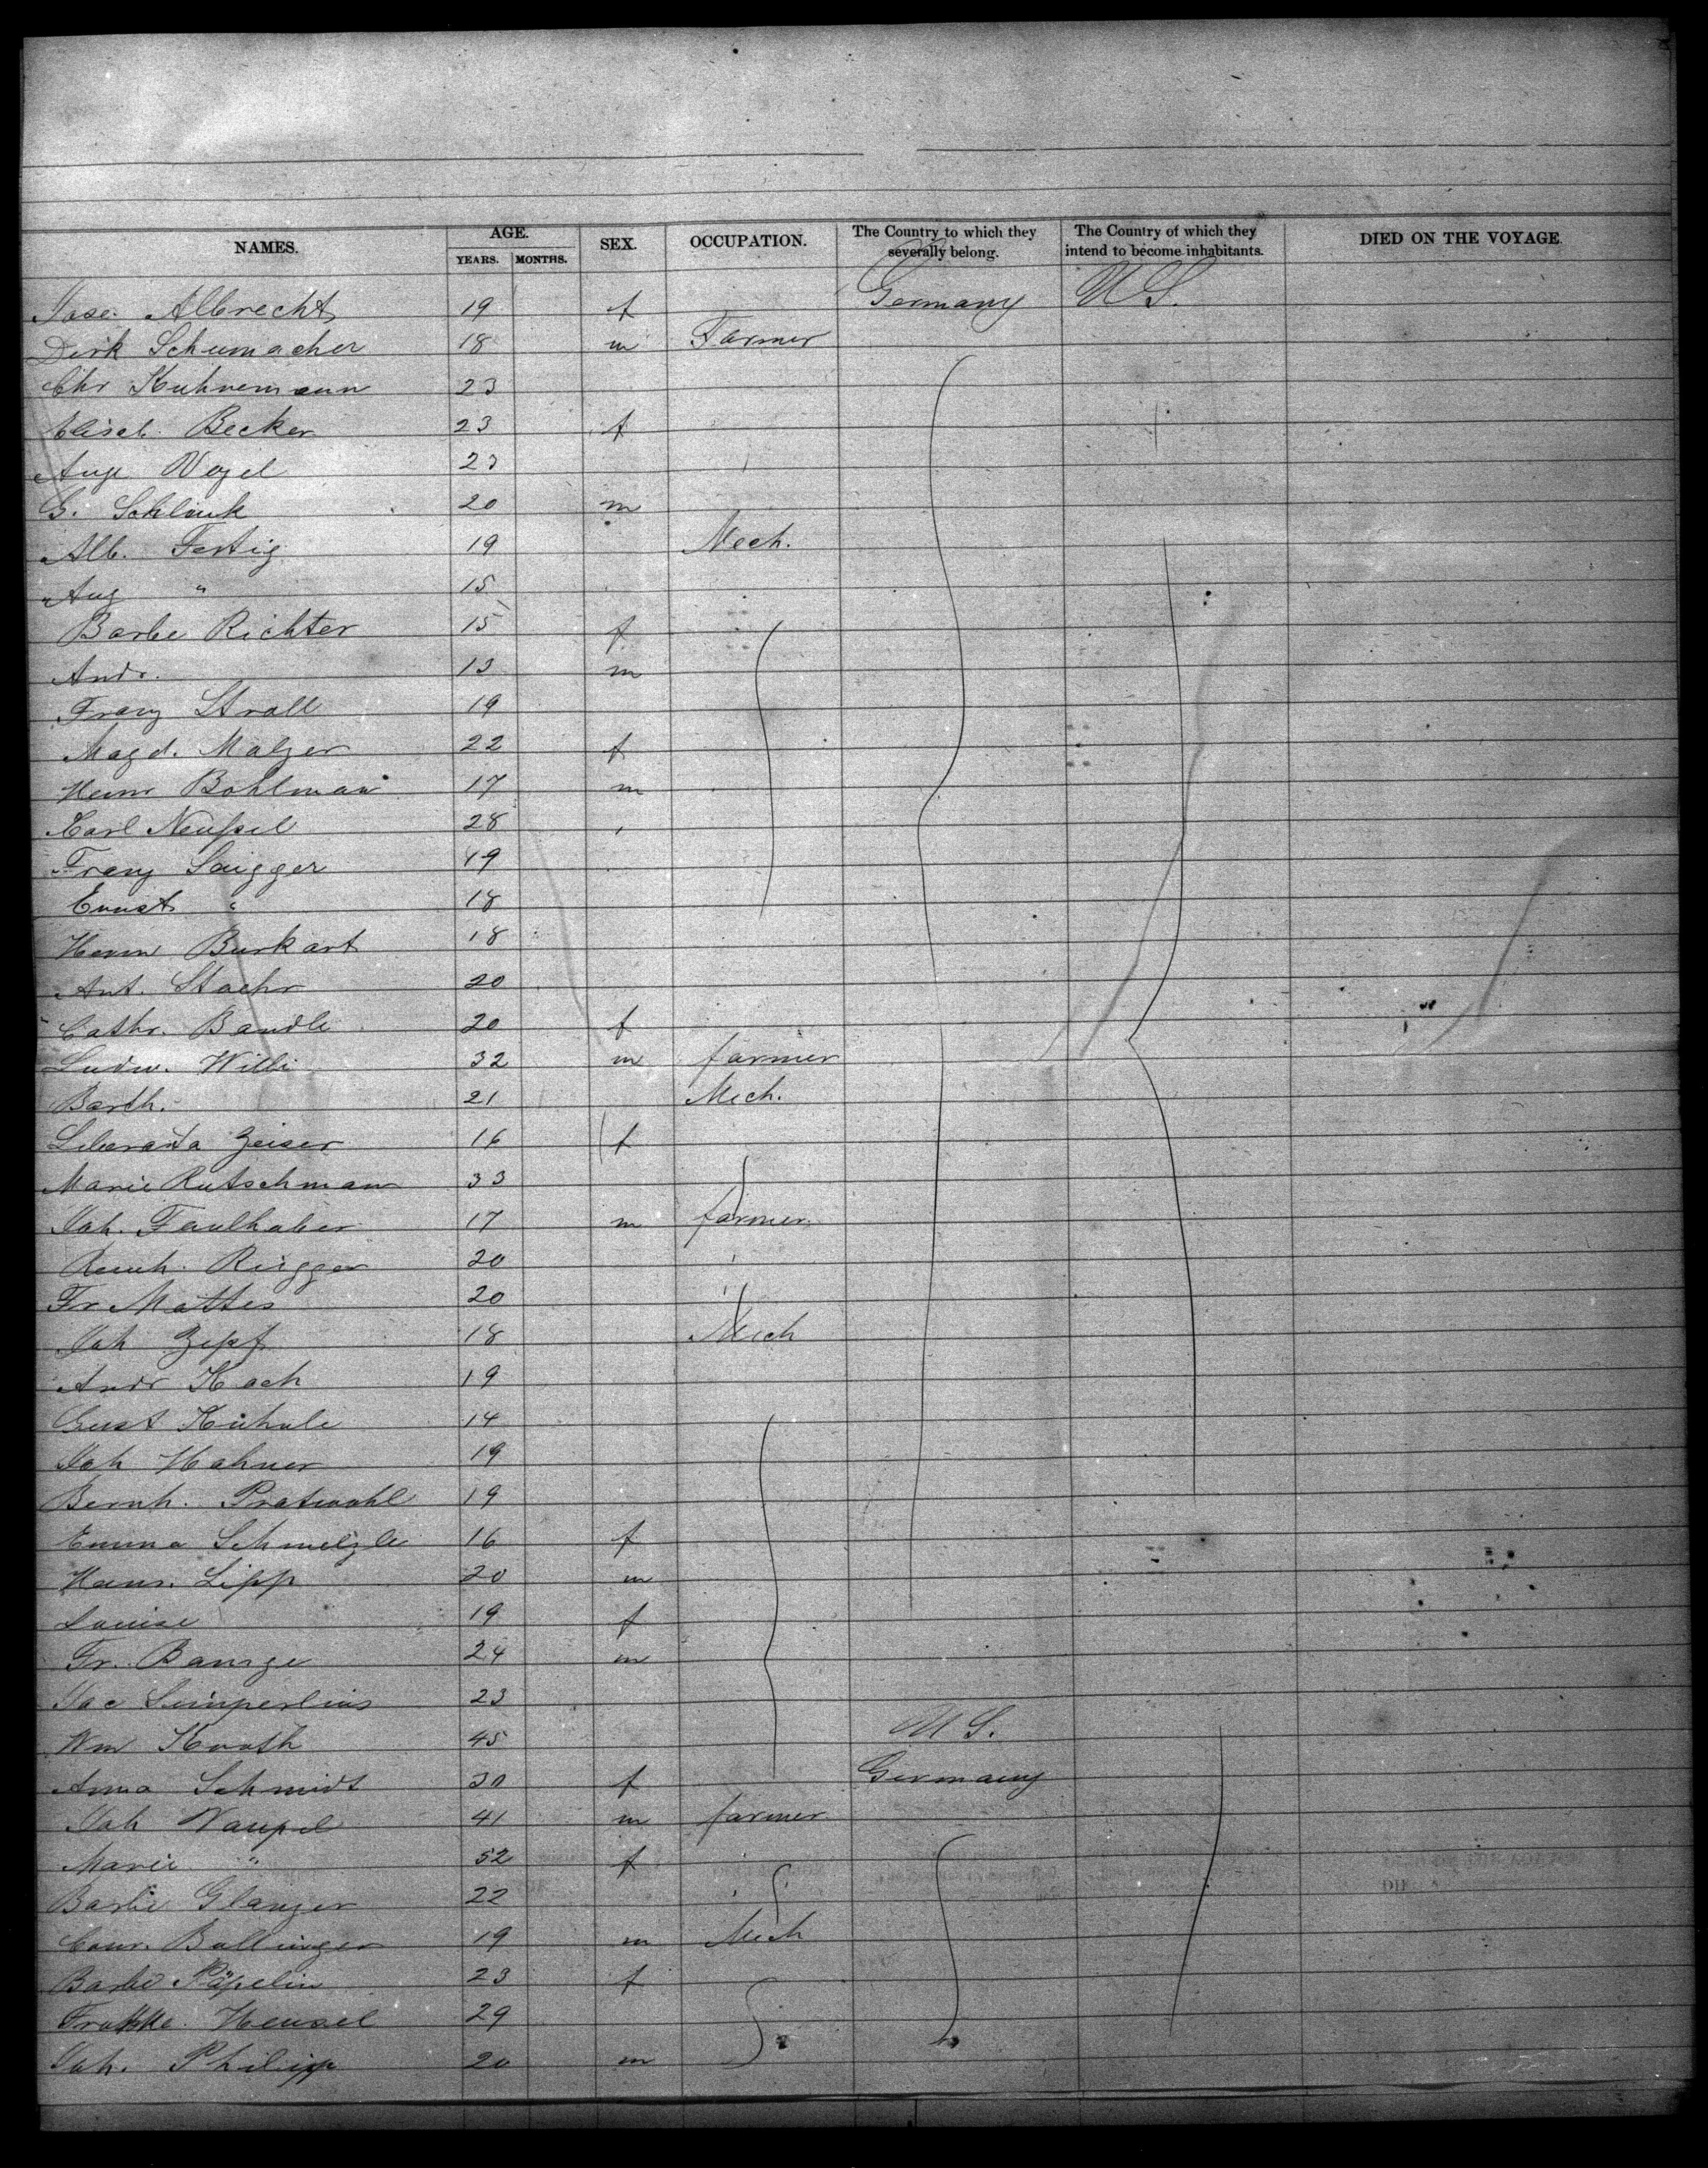 NAMES. AGE. YEARS. MONTHS. SEX. OCCUPATION. The Country to which they severally belong. The Country of which they intend to become inhabitants. DIED ON THE VOYAGE.
Jose. Albrecht 19 f Germany U S.
Dirk Schumacher 18 m Farmer
Chr Kuhnemann 23
Elisab. Becker 23 f
Aug Vogel 23
G. Schlink 20 m
Alb. Fertig 19 Mech.
Aug " 15
Barbe Richter 15 f
Andr. 13 m
Franz Stroll 19
Magd. Malzer 22 f
Heinr Bohlman 17 m
Karl Neußel 28
Franz Saigger 19
Ernst " 18
Herm Burkart 18
Ant. Staehr 20
Cathr. Bandle 20 f
Ludw. Willi 32 m farmer
Barth. 21 Mech.
Liberata Zeiser 16 f
Marie Rutschman 33
Joh. Faulhaber 17 m farmer.
Reinh. Riegger 20
Fr Mattes 20
Joh Zepf 18 Mech
Andr Koch 19
Gust Kuhnle 14
Joh Hahner 19
Bernh. Pratwohl 19
Emma Schmelzle 16 f
Hans. Lipp 20 m
Louise 19 f
Fr. Bange 24 m
Jac 23
Wm 45 U S.
Anna Schmidt 30 f Germany
Joh Vaupel 41 m farmer
Marie " 52 f
Barbe Glanzer 22
Conr. Bollinger 19 m Mech
Barbe Päpelin 23 f
Hensel 29
Joh. Philipp 20 m